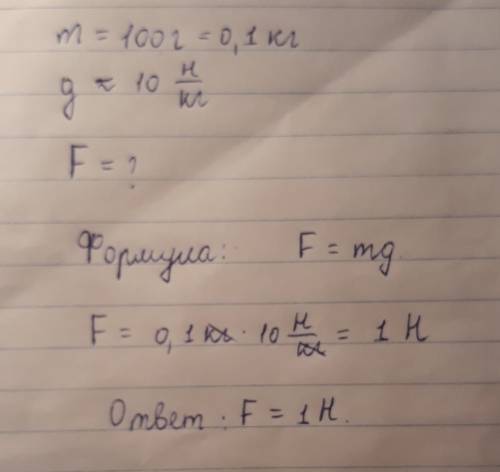 m = 100г = 0,1 кг
g ≈ 10 н/кг
F = ?
Формула: F = mg
F = 0,1 кг · 10 Н/кг = 1 Н
Ответ: F = 1 Н.